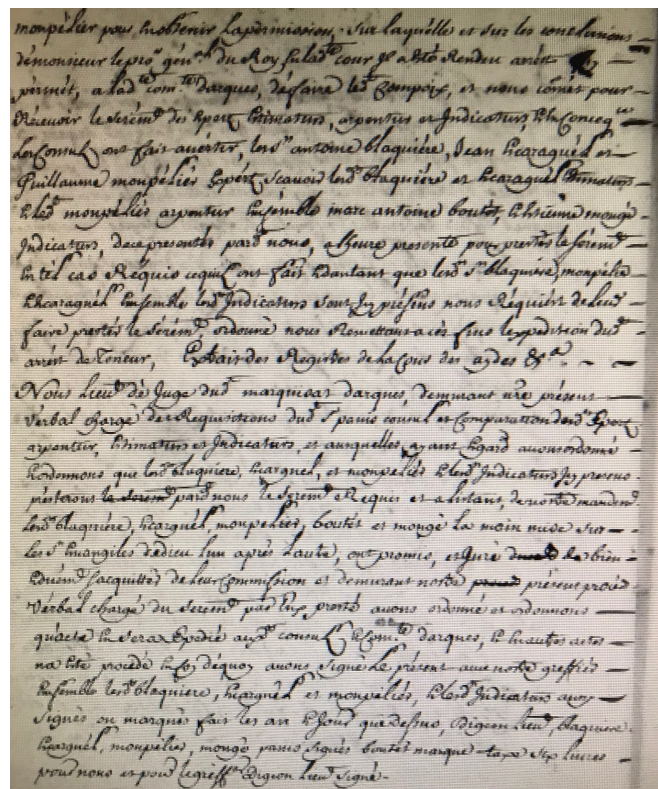 monpelier pour en obtenir la permission, sur laquelle et sur les conclusions
de monsieur le pro.r gen.al du Roy en lad.te cour il a esté Rendu arrêt
permet, a lad.te com.té darques, de faire led.t Compoix, et nous comet pour
Recevoir le serem.t des Expert Estimateurs, arpenteur et Indicateurs, En Conseq.ce
les Consul ont fait avertir, les s.rs antoine blaquiere, Jean Escaraguel et
Guillaume monpeliés Expert scavoir lesd. blaquiere et Escaraguel Estimateurs
et led. monpeliés arpenteur Ensemble marc antoine boutet, Etienne monge
Indicateurs, de ce presentes pard. nous, a lheure presente pour preter le serem.t
En tel cas Requis ce quil ont fait Edautant que lesd. s.rs blaquiere, monpelie
Escaraguel Ensemble lesd. Indicateurs sont Icy presens nous Requiert de leur
faire preter le serem.t ordonné nous Remettant a ces fins lexpedition dud.
arret de Teneur, Extrait des Registres de la Cour des aydes &.a
Nous Lieu.t de Juge dud. marquisat darques, demurant le present
Verbal chargé des Requisitions dud. s.r panis consul et Comparution desd. Expert
arpenteur, Estimateurs et Indicateurs, et auxquelles ayant Egard avons ordonné
Eordonnons que lesd. blaquiere, Escaraguel, et monpeliés Elesd. Indicateurs Icy presens
preteront pard. nous le serem.t Requis et a linstant, de notre mandem.t
lesd. blaquiere, Escaraguel, monpeliés, boutet et monge la main mise sur
les s.ts Evangiles de dieu lun après lautre, ont promis, et Juré de bien
Eduem.t sacquitter de leur Commission et demurant notre present procès
Verbal chargé du serem.t par Eux preté avons ordonné et ordonnons
quacte En sera Expedié auxd. consul Ecom.té darques, Edautres actes
na été procedé En foy dequoy avons signé Le present avec notre greffier
Ensemble lesd. blaquiere, Escaraguel et monpeliés, Elesd. Indicateurs aussy
signés ou marqués fait les an Ejour que Dessus, Digeon lieu.t, blaquiere
Escaraguel, monpeliés, monge panis signés boutet marque taxe six livres
pour nous et pour le greff.er Digeon lieu.t signé.